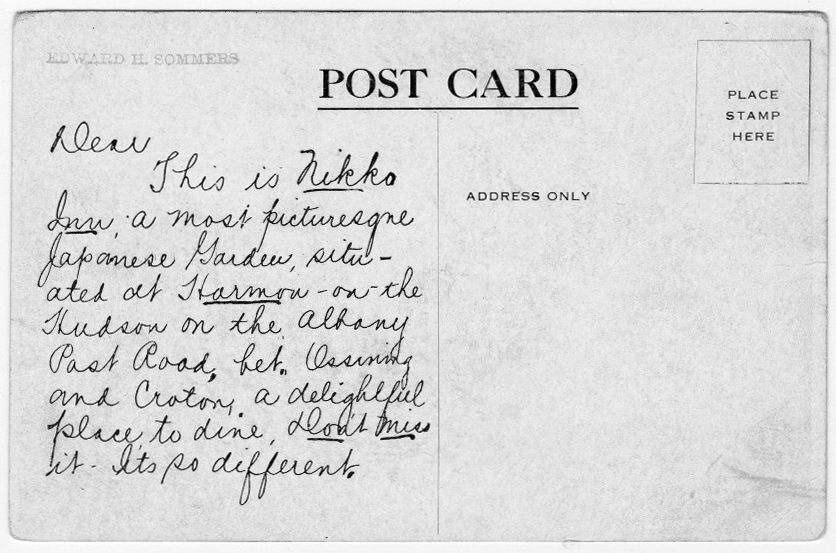 EDWARD H. SOMMERS
POST CARD
PLACE
STAMP
HERE
ADDRESS ONLY
Dear
This is Nikko
Inn, a most picturesque
Japanese Garden, situ-
ated at Harmon-on-the
Hudson on the Albany
Post Road, bet. Ossining
and Croton, a delightful
place to dine, Don't miss
it - Its so different.